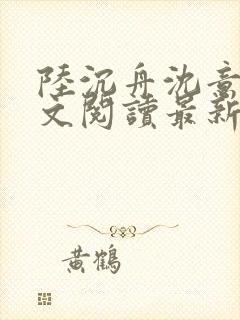 陸沉舟沈意
文閱讀最新
黃鶴